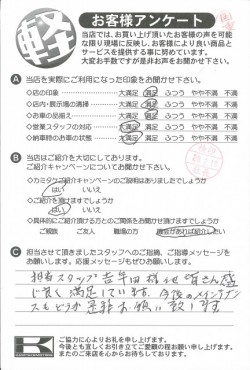 軽
お客様アンケート
当店では、お買い上げ頂いたお客様の声を可能
な限り現場に反映し、お客様により良い商品と
サービスを提供する事に努めています。
大変お手数ですが是非お声をお聞かせ下さい。
A 当店を実際にご利用になった印象をお聞かせ下さい。
◇店の印象 大満足 満足 ふつう やや不満 不満
◇店内・展示場の清掃 大満足 満足 ふつう やや不満 不満
◇お車の品揃え 大満足 満足 ふつう やや不満 不満
◇営業スタッフの対応 大満足 満足 ふつう やや不満 不満
◇納車時のお車の状態 大満足 満足 ふつう やや不満 不満
B 当店はご紹介を大切にしております。
ご紹介キャンペーンについてお聞かせ下さい。
◇カミタケご紹介キャンペーンのご説明はありましたでしょうか
はい いいえ
◇ご紹介を頂けますでしょうか
はい いいえ
◇具体的にご紹介頂ける方とのご関係をお聞かせ頂けますでしょうか
ご親族 ご友人 職場の方 機会があれば紹介したい
C 担当させて頂きましたスタッフへのご指摘、ご指導メッセージを
お願いします。応援メッセージもぜひお願いします。
担当スタッフ吉年田様他皆さん感
じ良く満足しています。今後のメインテナン
スもどうか是非お願い致します
K
ご協力に心よりお礼を申し上げます。
今後とも宜しくお引き立てご愛顧の程お願い申し上げます。
またのご来店を心からお待ちしております。